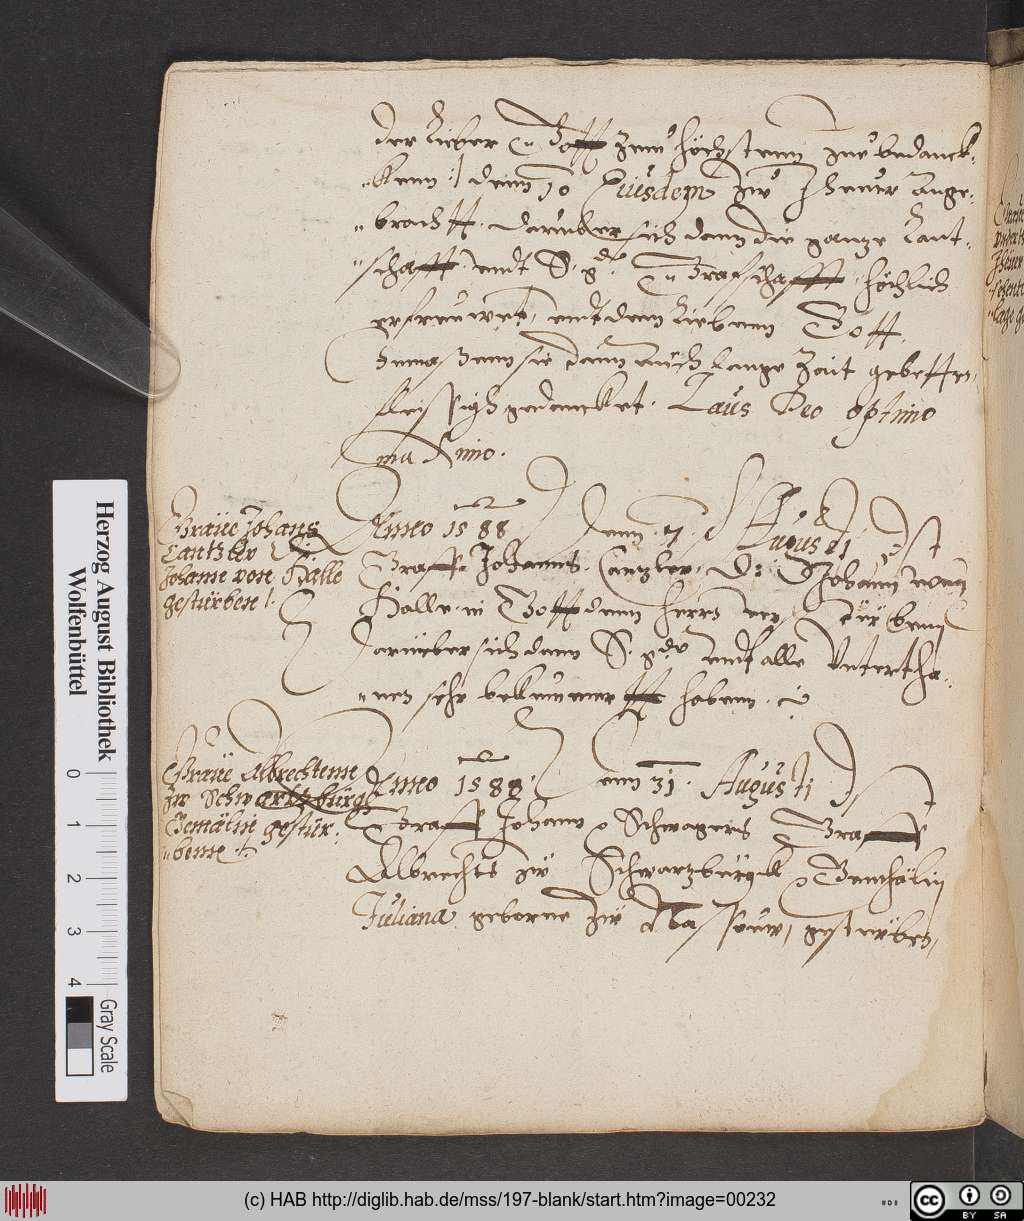 der Lieber Gott zum höchstenn zue bedanck-
-kenn :/ denn 10 Eiusdem zů Jheuer ange-
-bracht. darüber sich dann die gantze Lant-
-schafft undt S. g. Graffschafft höchlich
erfreuwet, undt dem Lieben Gott
sie dann auch lange Zeit gebetten,
fleissigh gedancket. Laus Deo optimo
maximo.
Graüe Johans
Cantzler D
Johane von Halle
gestürbene /.
Anno 1588 Denn 7. Augusti Ist
Graff Johanns Cantzler D: Johann vonn
Halle in Gott dem Herrn verstürbenn
Darüber sich dann S. g. undt alle Untertha-
-nen sehr bekümmertt habenn.
Graüe Albrechtenne
zů Schwartzbürgh
Gemälin gestür:
-benne /.
Anno 1588. Denn 31. Augusti Ist
Graff Johann Schwagers Graff
Albrechts zů Schwartzbürgk Gemhälin
Jüliana geborne zů Nassouw, gestürben,
Herzog August Bibliothek
Wolfenbüttel
0 1 2 3 4
Gray Scale
(c) HAB http://diglib.hab.de/mss/197-blank/start.htm?image=00232
cc BY SA